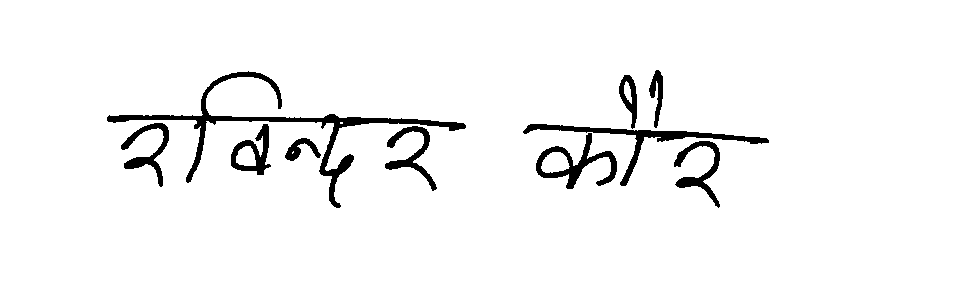 रविन्दर कौर